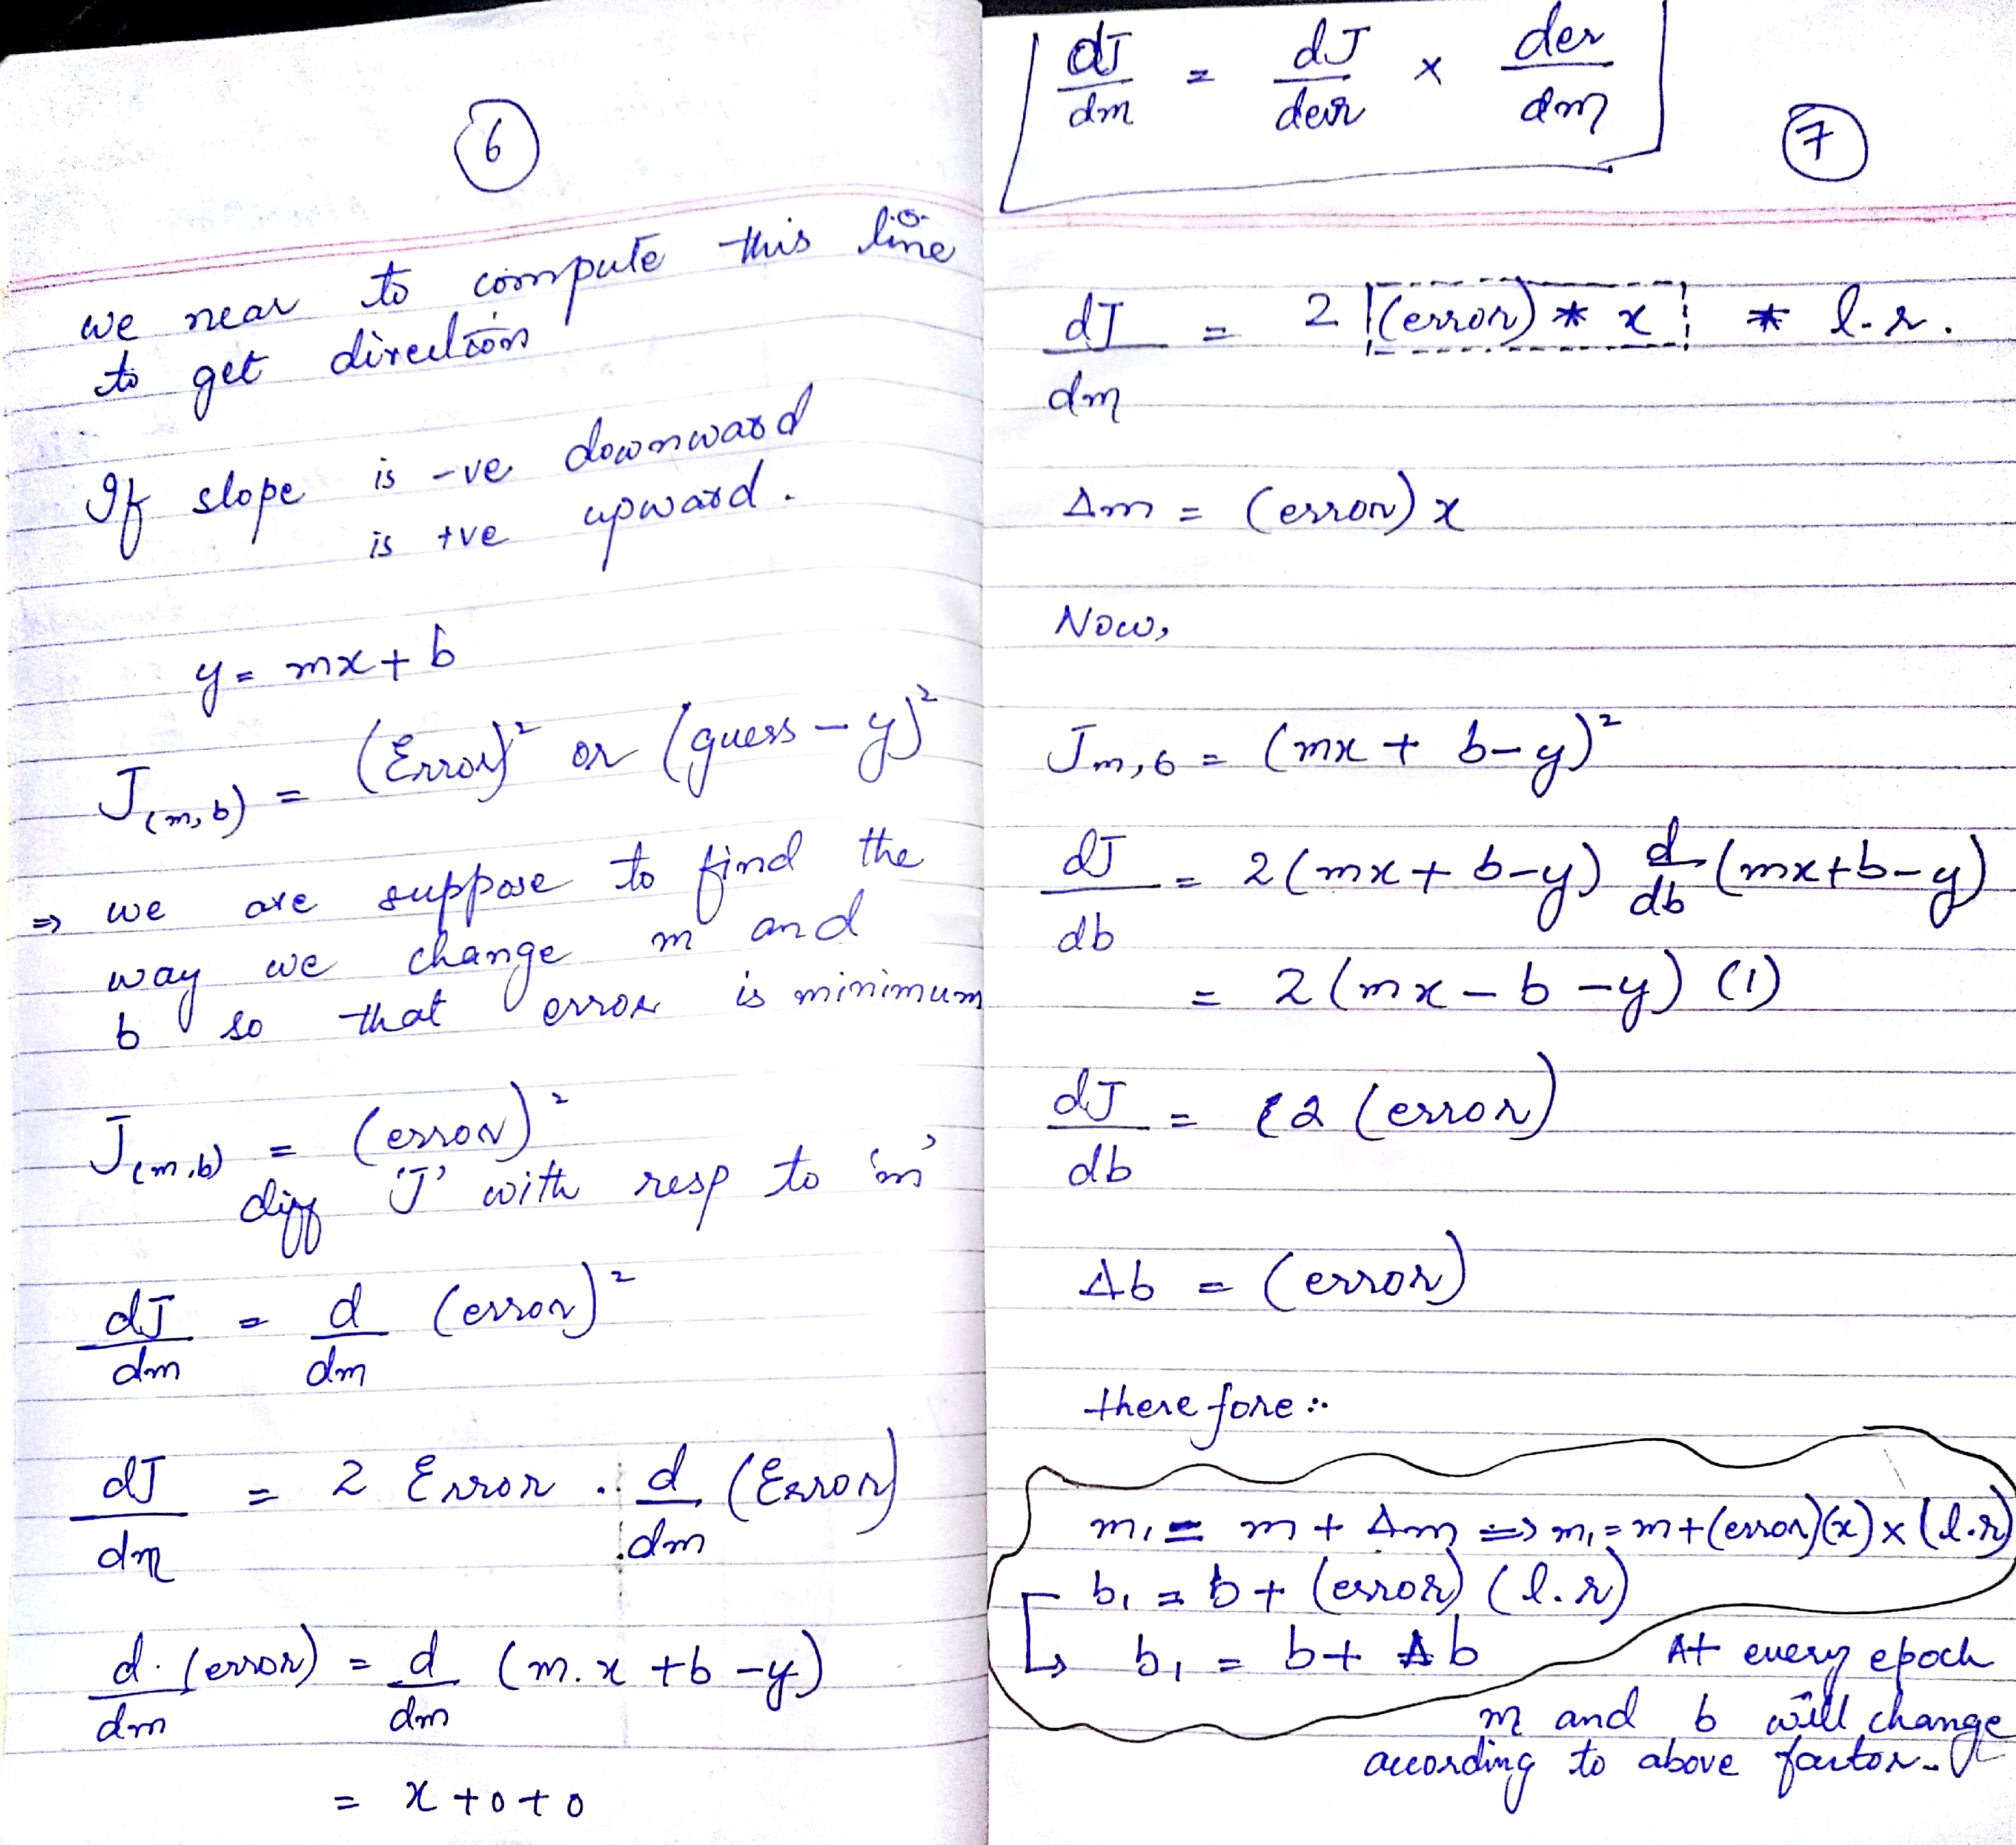 6
we near to compute this line
to get direction
If slope is -ve downward
is +ve upward.
y = mx + b
J(m,b) = (Error)² or (guess - y)²
⇒ we are suppose to find the
way we change m and
b so that error is minimum
J(m,b) = (error)²
diff 'J' with resp to 'm'
dJ/dm = d/dm (error)²
dJ/dm = 2 Error . d/dm (Error)
d/dm . (error) = d/dm (m.x + b - y)
= x + 0 + 0
dJ/dm = dJ/der × der/dm
7
dJ/dm = 2 (error) * x * l.r.
Δm = (error) x
Now,
Jm,b = (mx + b - y)²
dJ/db = 2(mx + b - y) d/db (mx + b - y)
= 2(mx - b - y) (1)
dJ/db = 2 (error)
Δb = (error)
therefore :.
m₁ = m + Δm ⇒ m₁ = m + (error)(x) × (l.r)
b₁ = b + (error) (l.r)
↳ b₁ = b + Δb
At every epoch
m and b will change
according to above factor.